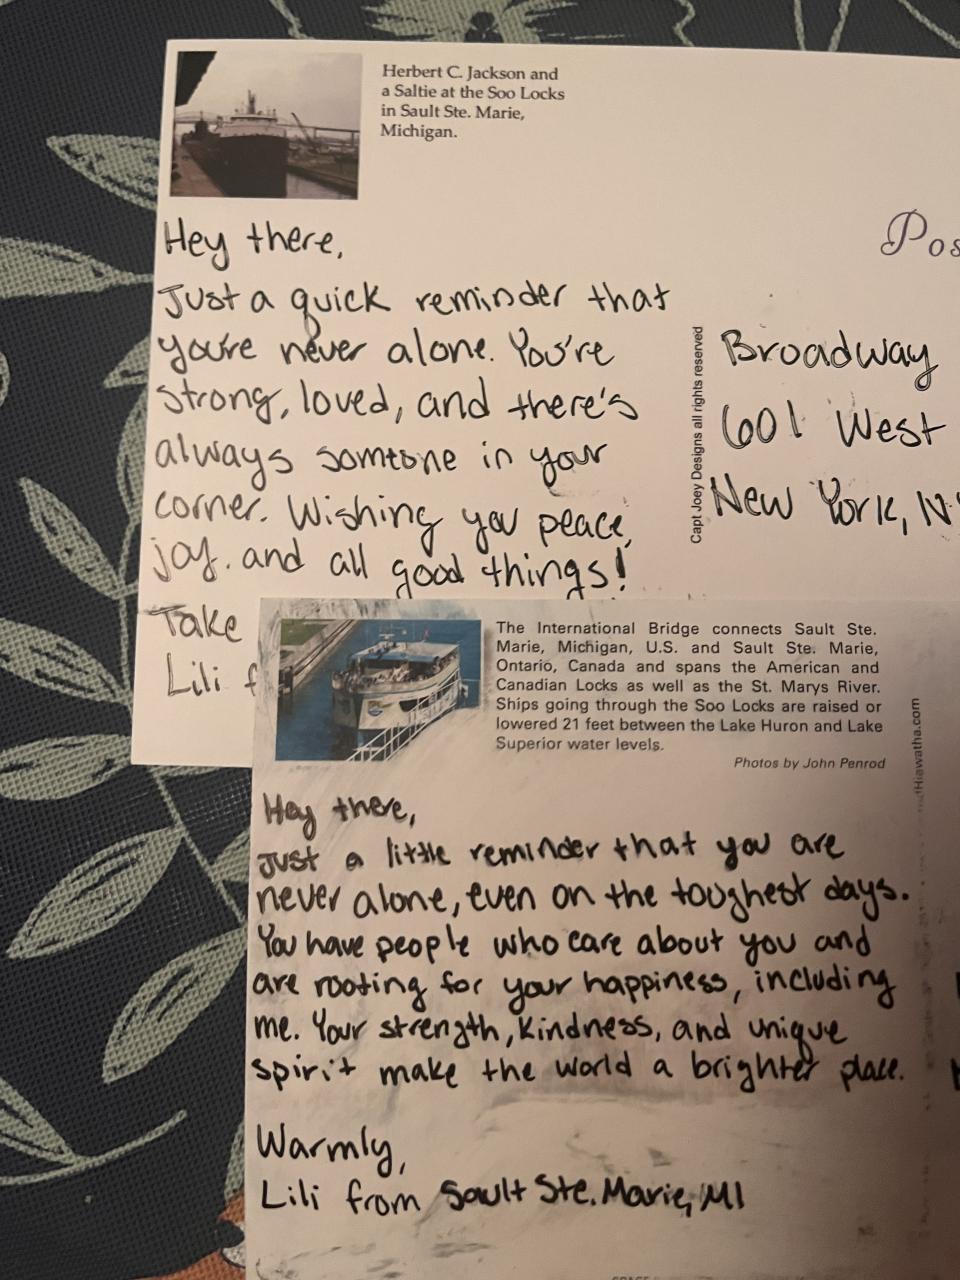 Herbert C. Jackson and
a Saltie at the Soo Locks
in Sault Ste. Marie,
Michigan.
Hey there,
Just a quick reminder that
you're never alone. You're
strong, loved, and there's
always somtone in your
corner. Wishing you peace,
joy. and all good things!
Take
Lili f
Pos
Capt Joey Designs all rights reserved
Broadway
601 West
New York, N
The International Bridge connects Sault Ste.
Marie, Michigan, U.S. and Sault Ste. Marie,
Ontario, Canada and spans the American and
Canadian Locks as well as the St. Marys River.
Ships going through the Soo Locks are raised or
lowered 21 feet between the Lake Huron and Lake
Superior water levels.
Photos by John Penrod
Hiawatha.com
Hey there,
Just a little reminder that you are
never alone, even on the toughest days.
You have people who care about you and
are rooting for your happiness, including
me. Your strength, kindness, and unique
spirit make the world a brighter place.
Warmly,
Lili from Sault Ste. Marie, MI